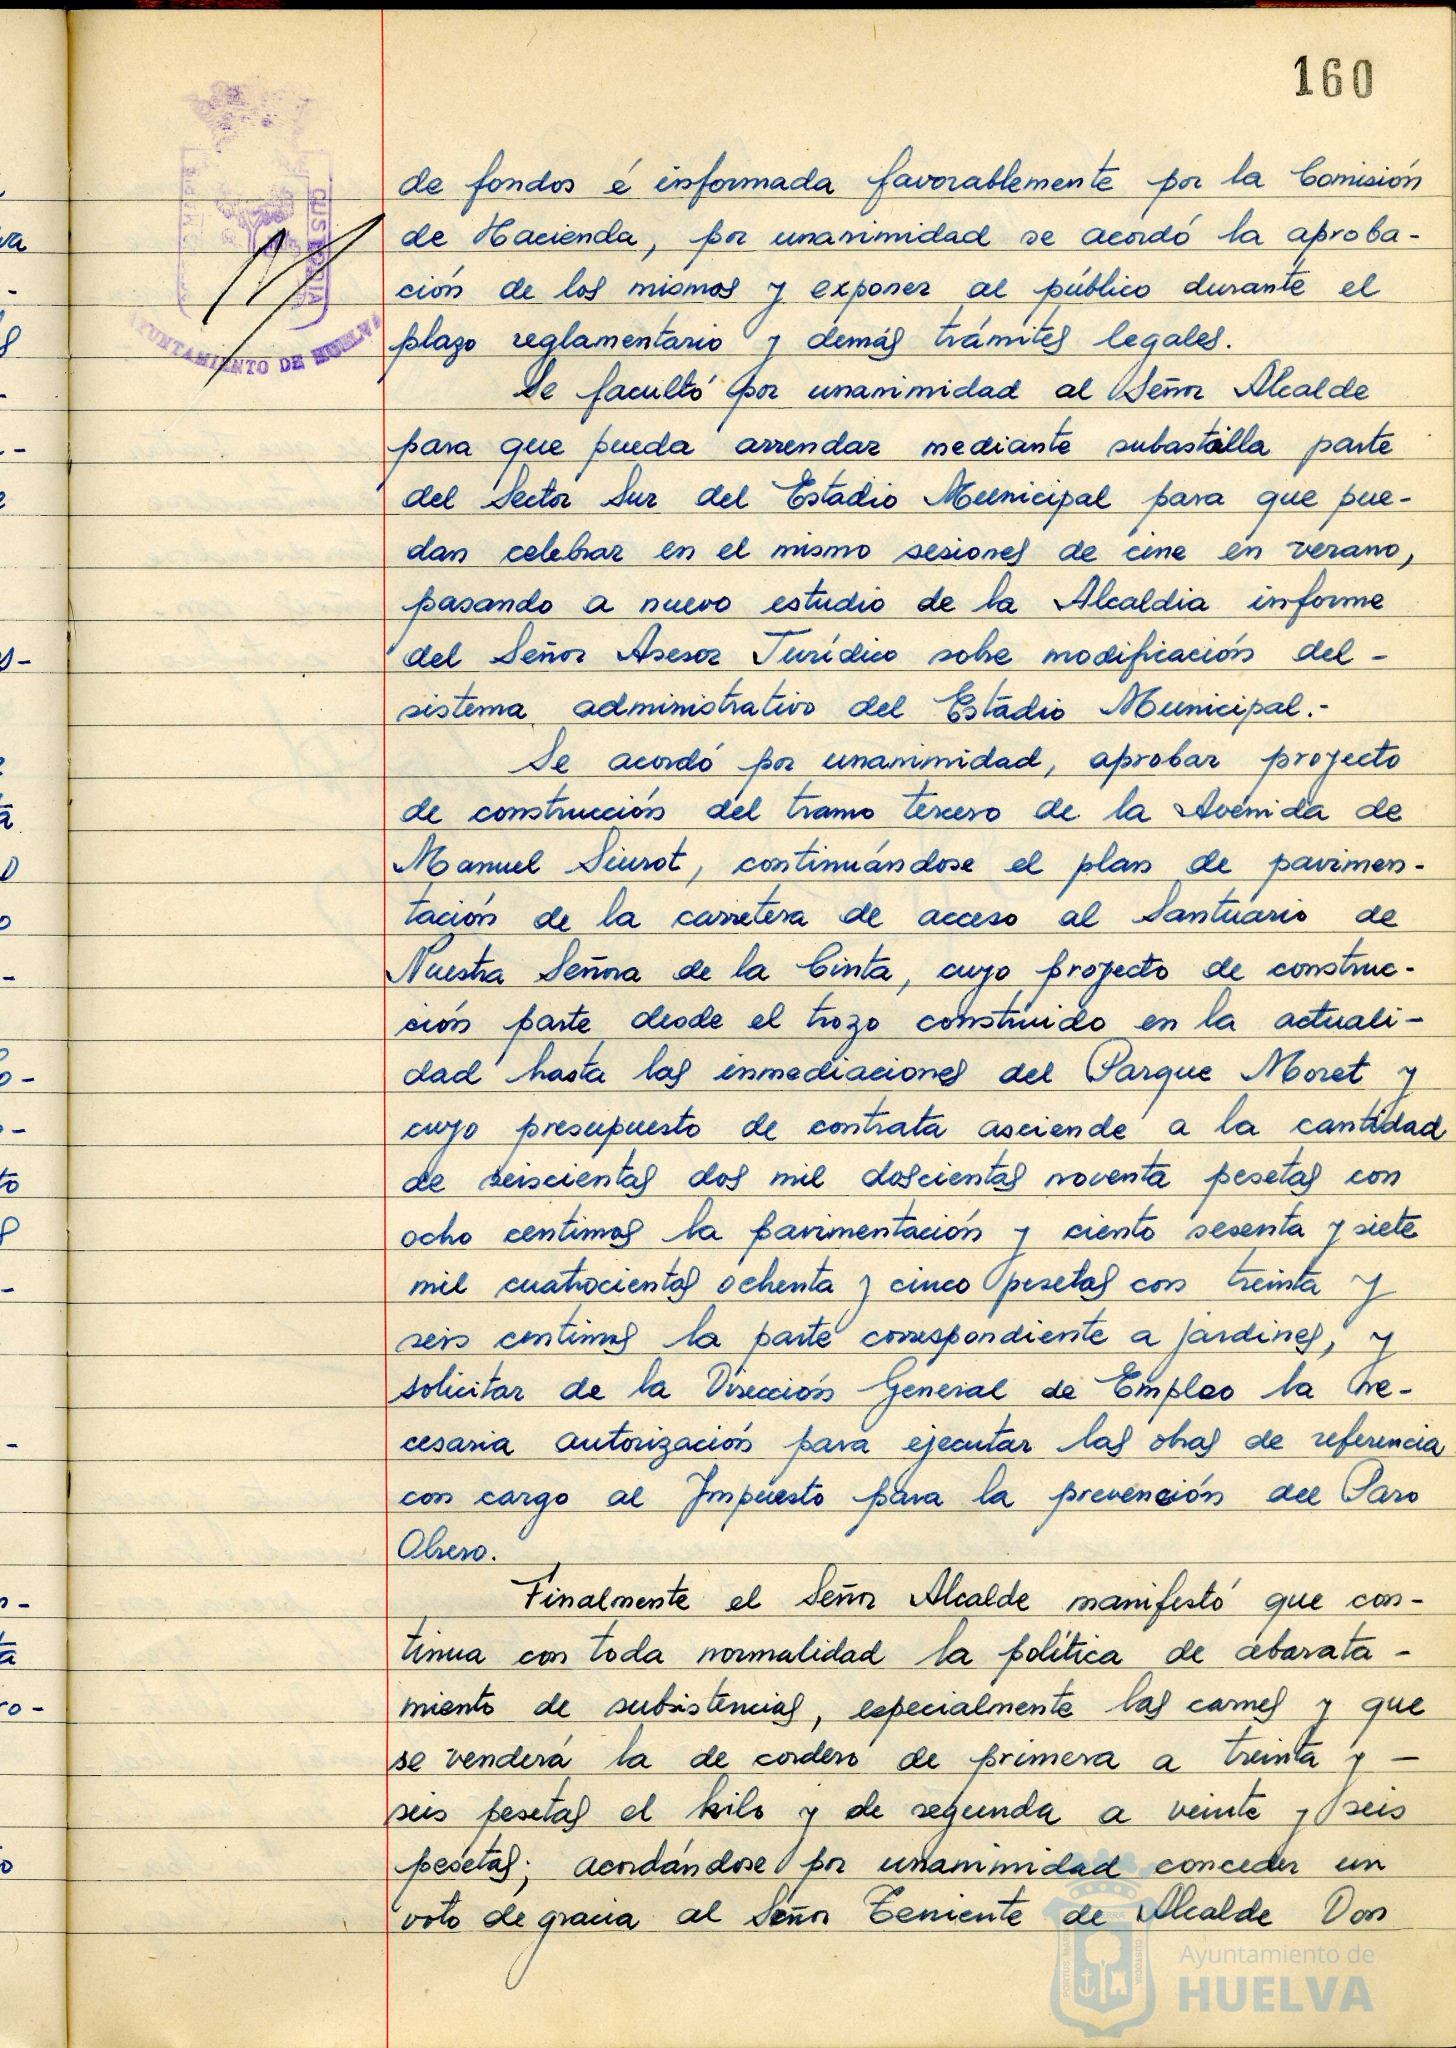 160
de fondos é informada favorablemente por la Comisión
de Hacienda, por unanimidad se acordó la aproba-
ción de los mismos y exponer al público durante el
plazo reglamentario y demás trámites legales.
Se facultó por unanimidad al Señor Alcalde
para que pueda arrendar mediante subastilla parte
del Sector Sur del Estadio Municipal para que pue-
dan celebrar en el mismo sesiones de cine en verano,
pasando a nuevo estudio de la Alcaldia informe
del Señor Asesor Jurídico sobre modificación del -
sistema administrativo del Estadio Municipal.-
Se acordó por unanimidad, aprobar proyecto
de construcción del tramo tercero de la Avenida de
Manuel Siurot, continuándose el plan de pavimen-
tación de la carretera de acceso al Santuario de
Nuestra Señora de la Cinta, cuyo proyecto de construc-
ción parte desde el trozo construido en la actuali-
dad hasta las inmediaciones del Parque Moret y
cuyo presupuesto de contrata asciende a la cantidad
de seiscientas dos mil doscientas noventa pesetas con
ocho centimos la pavimentación y ciento sesenta y siete
mil cuatrocientas ochenta y cinco pesetas con treinta y
seis centimos la parte correspondiente a jardines, y
solicitar de la Dirección General de Empleo la ne-
cesaria autorización para ejecutar las obras de referencia
con cargo al Impuesto para la prevención del Paro
Obrero.
Finalmente el Señor Alcalde manifestó que con-
tinua con toda normalidad la política de abarata-
miento de subsistencias, especialmente las carnes y que
se venderá la de cordero de primera a treinta y -
seis pesetas el kilo y de segunda a veinte y seis
pesetas; acordándose por unanimidad conceder un
voto de gracia al Señor Teniente de Alcalde Don
AYUNTAMIENTO DE HUELVA
Ayuntamiento de
HUELVA